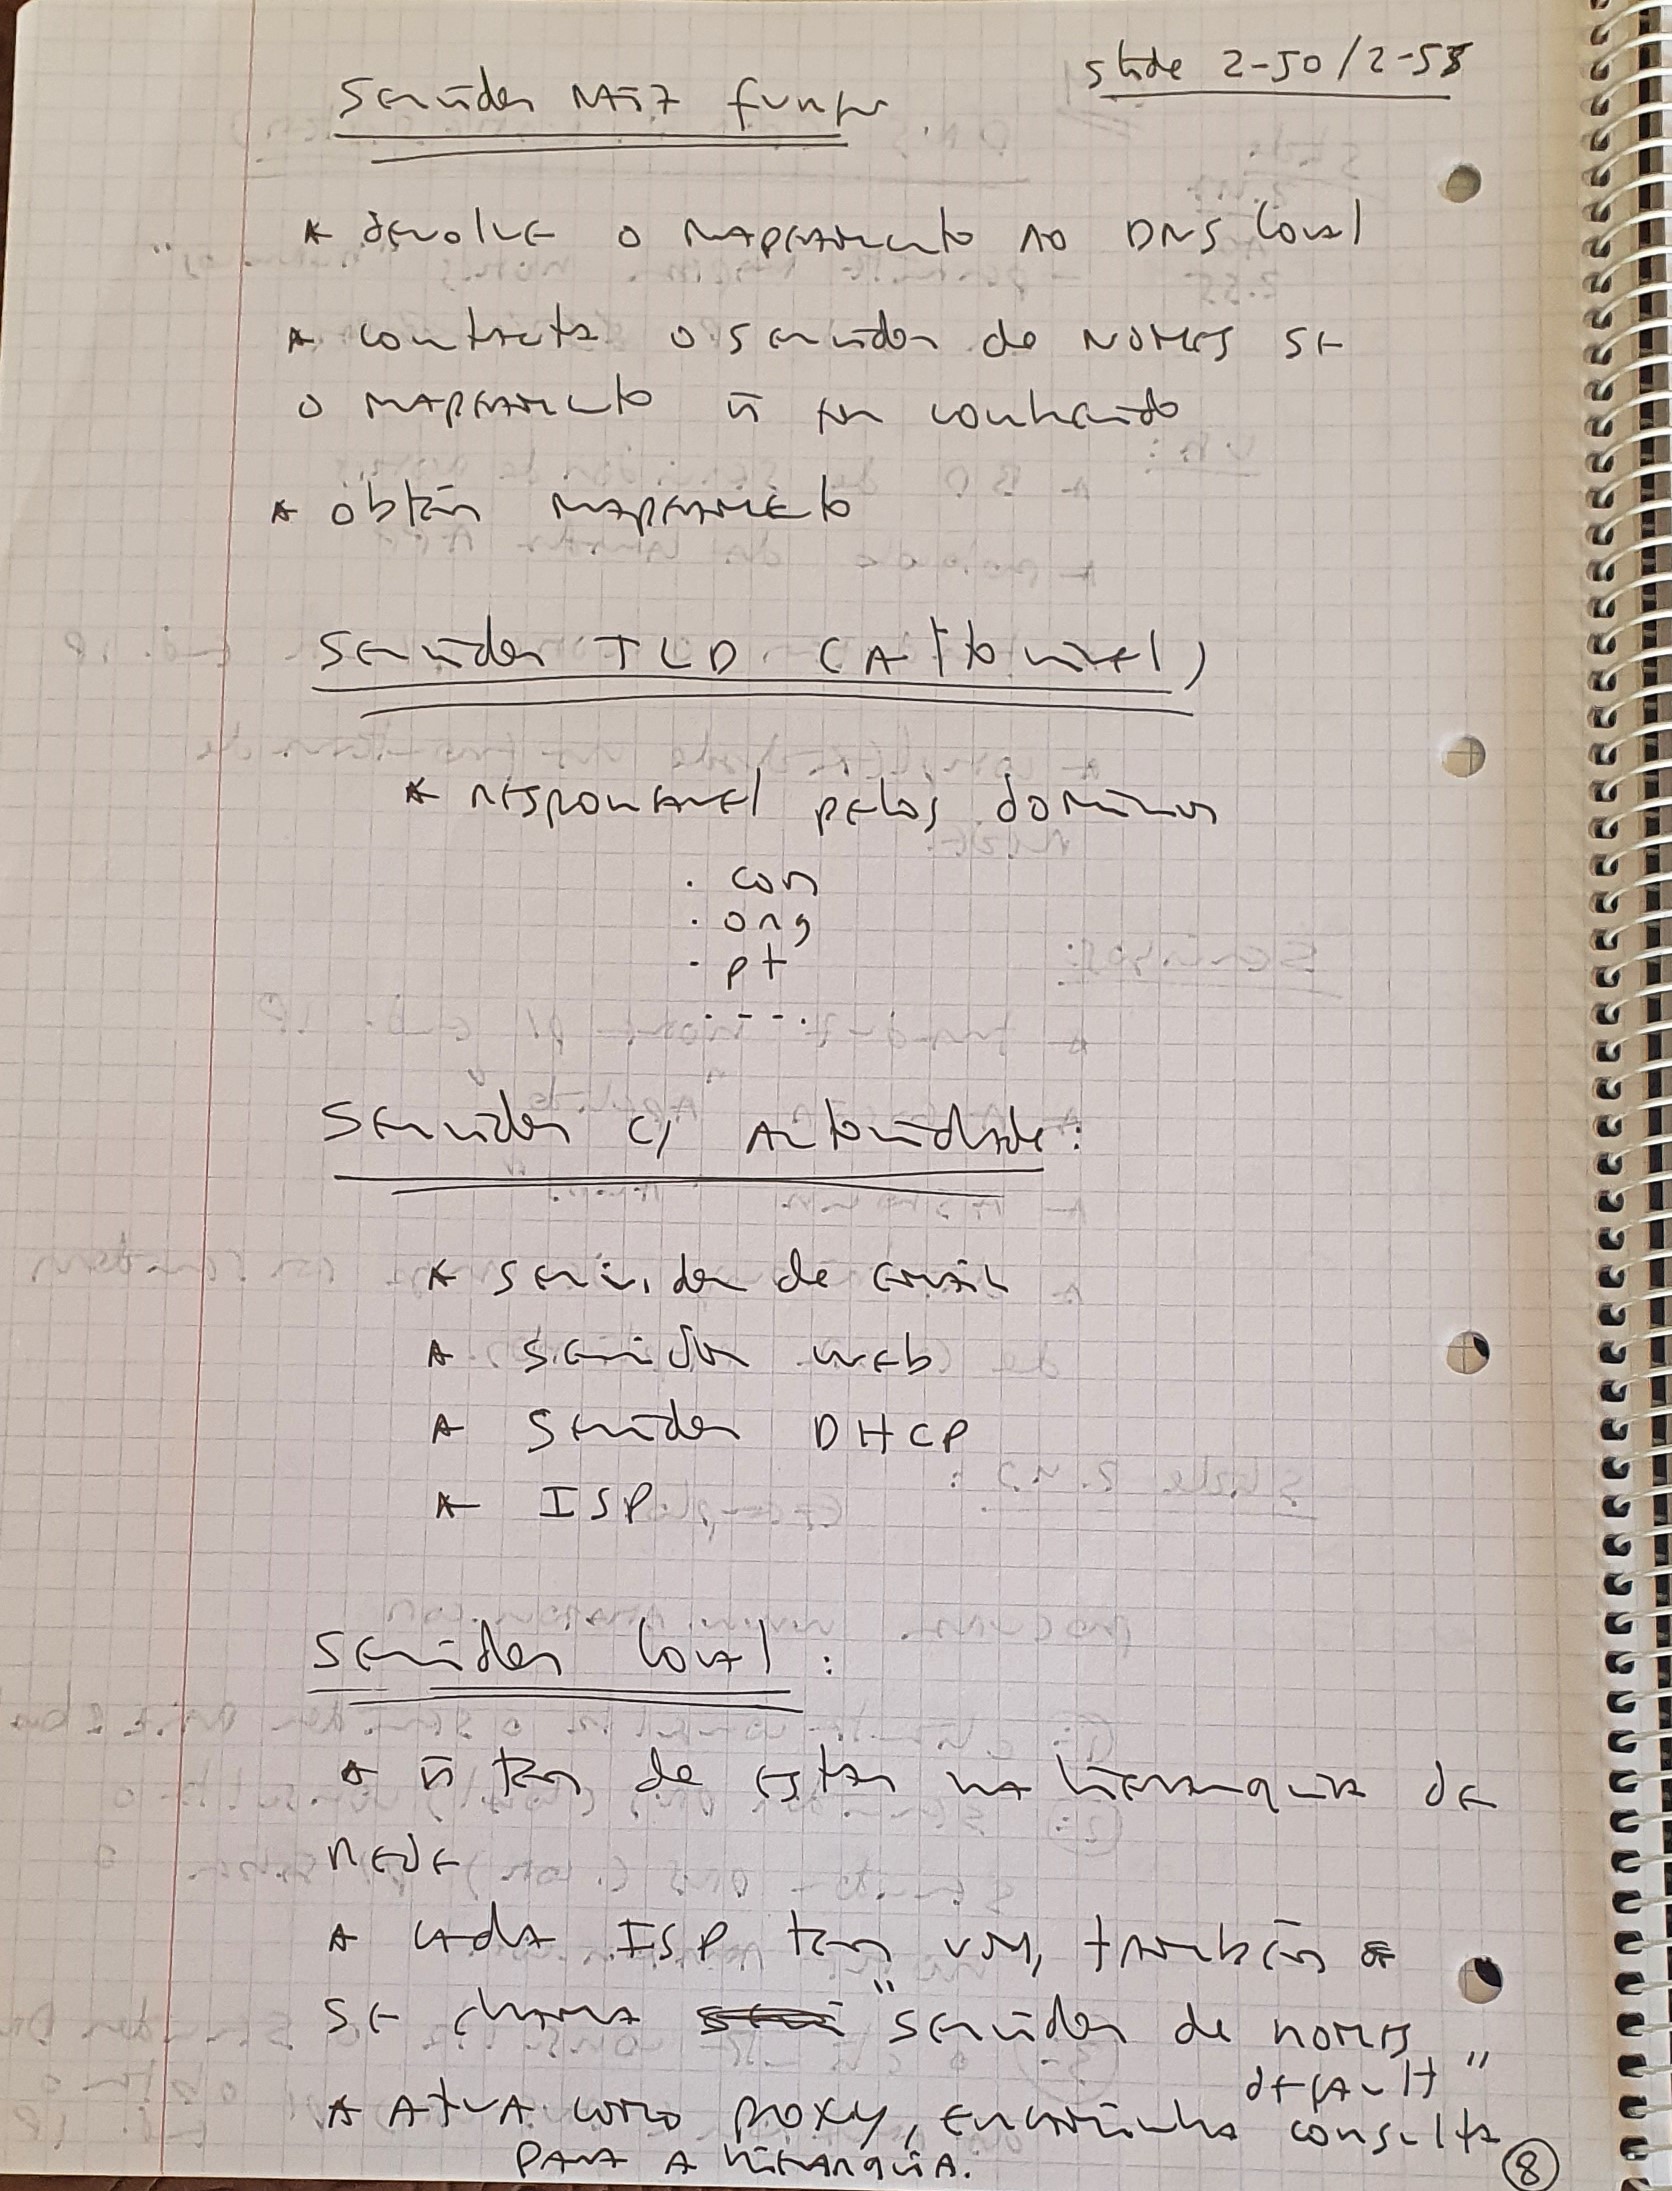 slide 2-50/2-58
Servidor raiz função
* devolve o mapeamento ao DNS local
* contacta o servidor de nomes se
o mapeamento ñ for conhecido
* obtém mapeamento
Servidor TLD (Alto nível)
* responsavel pelos dominios
. com
. org
. pt
. - - .
Servidor c/ Autoridade:
* servidor de email
* servidor web
* servidor DHCP
* ISP
Servidor local:
* ñ tem de estar na hierarquia de
rede
* cada ISP tem um, também
se chama "servidor de nomes
default"
* Atua como proxy, encaminha consulta
para a hierarquia.
8